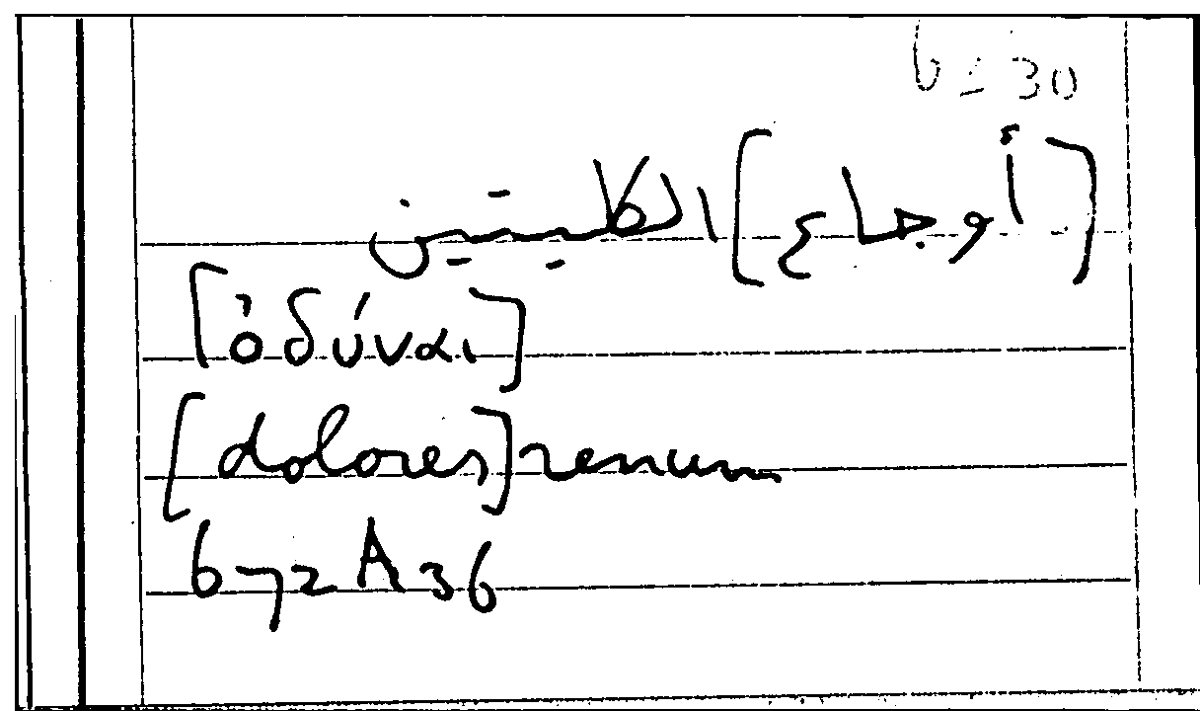 b = 30
[أوجاع] الكليتين
[ὀδύναι]
[dolores] renum
672 A 36